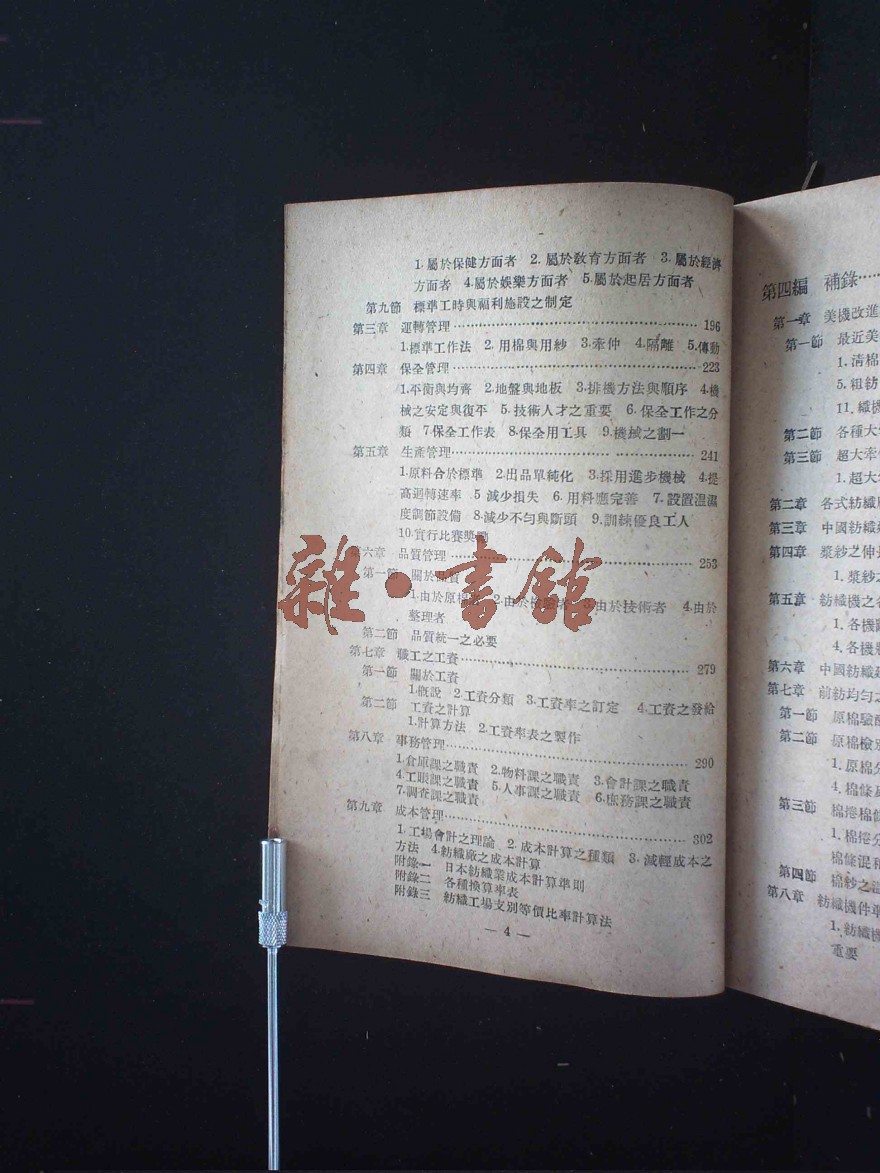 1.屬於保健方面者 2.屬於敎育方面者 3.屬於經濟
方面者 4.屬於娛樂方面者 5.屬於起居方面者
第九節 標準工時與福利施設之制定
第三章 運轉管理 196
1.標準工作法 2.用棉與用紗 3.牽伸 4.隔離 5.傳動
第四章 保全管理 223
1.平衡與均齊 2.地盤與地板 3.排機方法與順序 4.機
械之安定與復平 5.技術人才之重要 6.保全工作之分
類 7.保全工作表 8.保全用工具 9.機械之劃一
第五章 生產管理 241
1.原料合於標準 2.出品單純化 3.採用進步機械 4.提
高迴轉速率 5 減少損失 6.用料應完善 7.設置溫濕
度調節設備 8.減少不勻與斷頭 9.訓練優良工人
10.實行比賽獎勵
第六章 品質管理 253
第一節 關於品質
1.由於原棉者 2.由於 3.由於技術者 4.由於
整理者
第二節 品質統一之必要
第七章 職工之工資 279
第一節 關於工資
1.槪說 2.工資分類 3.工資率之訂定 4.工資之發給
第二節 工資之計算
1.計算方法 2.工資率表之製作
第八章 事務管理 290
1.倉庫課之職責 2.物料課之職責 3.會計課之職責
4.工賬課之職責 5.人事課之職責 6.庶務課之職責
7.調查課之職責
第九章 成本管理 302
1.工場會計之理論 2.成本計算之種類 3.減輕成本之
方法 4.紡織廠之成本計算
附錄一 日本紡織業成本計算準則
附錄二 各種換算率表
附錄三 紡織工場支別等價比率計算法
— 4 —
雜·書館
第四編 補錄
第一章 美機改進
第一節 最近美
1.清棉
5.粗紡
11.織機
第二節 各種大
第三節 超大牽
1.超大
第二章 各式紡織
第三章 中國紡織
第四章 漿紗之伸
1.漿紗之
第五章 紡織機之各
1.各機
4.各機
第六章 中國紡織
第七章 前紡均勻之
第一節 原棉驗
第二節 原棉檢別
1.原棉分
4.棉條
第三節 棉捲棉條
1.棉捲分
棉條混和
第四節 棉紗之
第八章 紡織機件
1.紡織機
重要